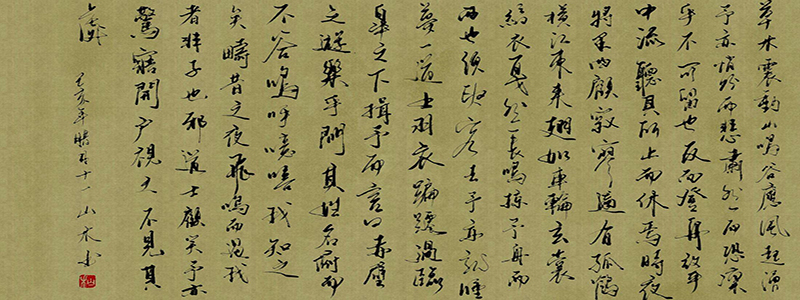 草木震動山鳴谷應風起湧
予亦悄然而悲肅然一而恐凜
乎不可留也反而登舟放乎
中流聽其所止而休焉時夜
將半四顧寂寥適有孤鶴
橫江東來翅如車輪玄裳
縞衣戛然一長鳴掠予舟而
西也須臾客去予亦就睡
夢一道士羽衣蹁躚過臨
皋之下揖予而言曰赤壁
之遊樂乎問其姓名俯而
不答嗚呼噫嘻我知之
矣疇昔之夜飛鳴而過我
者非子也邪道士顧笑予亦
驚寤開戶視之不見其
處
己亥年臘月十一山木書